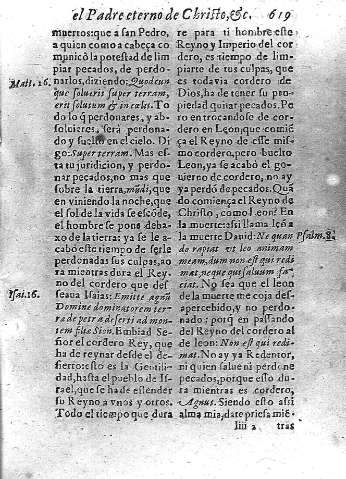 el Padre eterno de Christo, &c. 619
muertos: que a san Pedro,
a quien como a cabeça co
municò la potestad de lim
piar pecados, de perdo-
narlos, diziendo: Quodcun
que solueris super terram,
erit solutum & in cœlis. To
do lo q̃ perdonares, y ab-
soluieres, serà perdona-
do y suelto en el cielo. Di
go: Super terram. Mas es-
ta tu juridicion, y perdo-
nar pecados, no mas que
sobre la tierra, mũdi, que
en viniendo la noche, que
el sol de la vida se escõde,
el hombre se pone deba-
xo de la tierra; ya se le a-
cabò este tiempo de serle
perdonadas sus culpas, ao
ra mientras dura el Rey-
no del cordero que des-
seaua Isaias: Emitte agnũ
Domine dominatorem ter
ræ de petra deserti ad mon-
tem filiæ Sion. Embiad Se-
ñor el cordero Rey, que
ha de reynar desde el de-
sierto: esto es la Gentili-
dad, hasta el pueblo de Is-
rael, que se ha de estender
su Reyno a vnos y otros.
Todo el tiempo que dura
Matt. 16.
Isai. 16.
re para ti hombre este
Reyno y Imperio del cor
dero, es tiempo de lim-
piarte de tus culpas, que
es todavia cordero de
Dios, ha de tener su pro-
piedad quitar pecados. Pe
ro en trocandose de cor-
dero en Leon, que comiẽ
ça el Reyno de esse mis-
mo cordero, pero buelto
Leon, ya se acabò el go-
uierno de cordero, no ay
ya perdõ de pecados. Quã
do comiença el Reyno de
Christo, como Leon? En
la muerte: assi llama leõ a
la muerte Dauid: Ne quan
do rapiat vt leo animam
meam, dum non est qui redi
mat, neque qui saluum fa-
ciat. No sea que el leon
de la muerte me coja des-
apercebido, y no perdo-
nado: porq̃ en passando
del Reyno del cordero al
de leon: Non est qui redi-
mat. No ay ya Redentor,
ni quien salue ni perdone
pecados, porque esso du-
ra mientras es cordero,
Agnus. Siendo esto assi
alma mia, date priessa, miẽ-
Psalm.
Iiii 2 tras